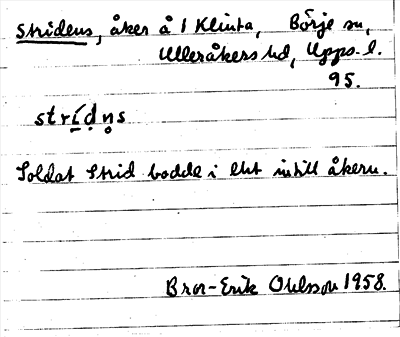 Stridens, åker å 1 Klinta, Börje sn,
Ulleråkers hd, Upps. l.
95.
strídn̥s
Soldat Strid bodde i ett intill åkern.
Bror-Erik Ohlsson 1958.